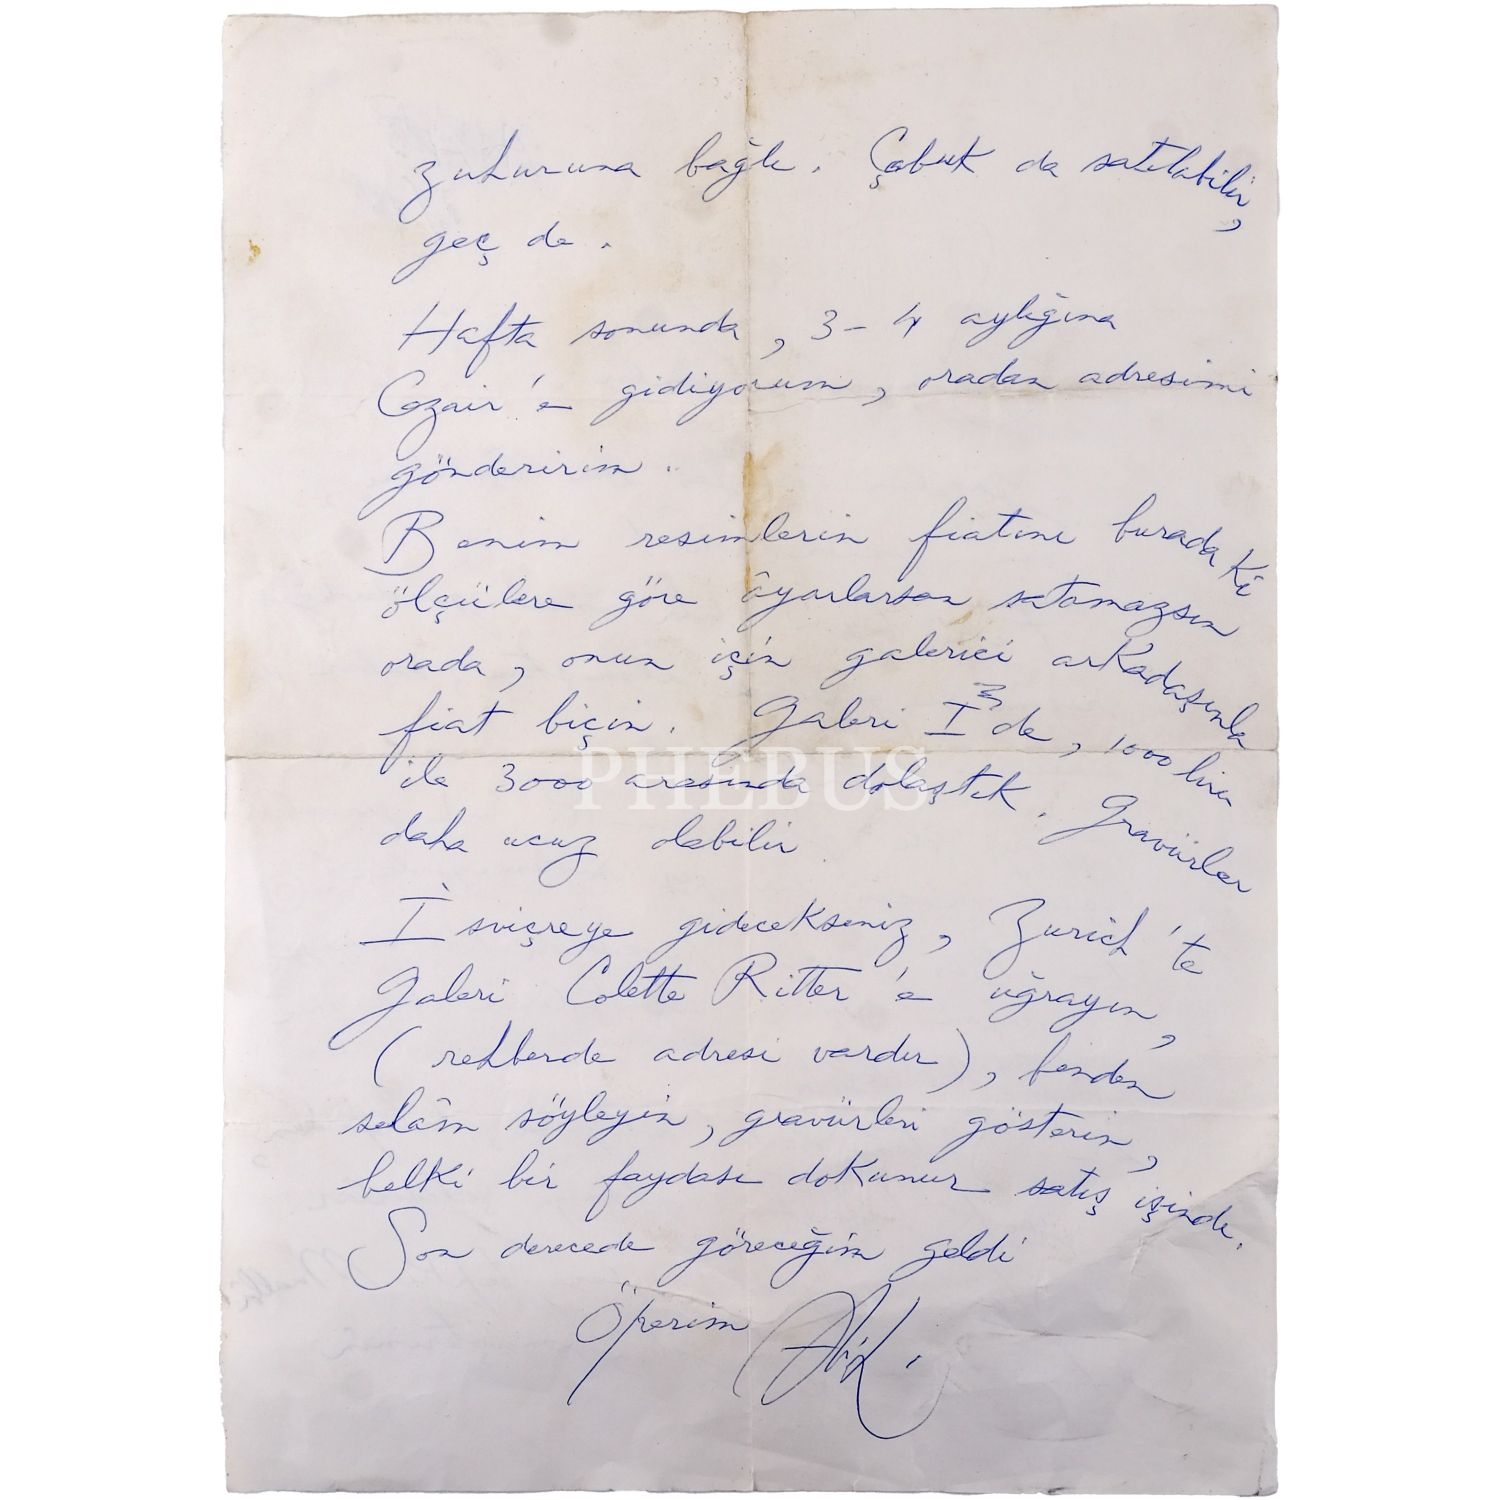 zuhuruna bağlı. Çabuk da satılabilir,
geç de.
Hafta sonunda, 3-4 aylığına
Cezair'e gidiyorum, oradan adresimi
gönderirim.
Benim resimlerin fiatını buradaki
ölçülere göre âyarlarsan satamazsın
orada, onun için galerici arkadaşınla
fiat biçin. Galeri I de, 1000 lira
ile 3000 arasında dolaştık. Gravürler
daha ucuz olabilir
İsviçreye gidecekseniz, Zurich'te
Galeri Colette Ritter'e uğrayın,
(rehberde adresi vardır), benden
selâm söyleyin, gravürleri gösterin,
belki bir faydası dokunur satış işinde.
Son derecede göreceğim geldi
Öperim
PHEBUS